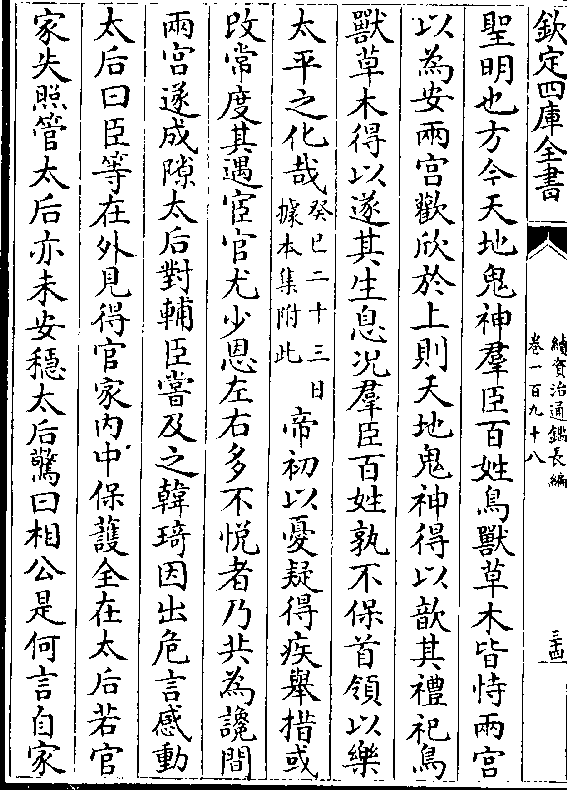 欽定四庫全書
續資治通鑑長編
卷一百九十八
三西
聖明也方今天地鬼神羣臣百姓鳥獸草木皆恃兩宮
以為安兩宮歡欣於上則天地鬼神得以歆其禮祀鳥
獸草木得以遂其生息况羣臣百姓孰不保首領以樂
太平之化哉癸巳二十三日據本集附此 帝初以憂疑得疾舉措或
改常度其遇宦官尤少恩左右多不悦者乃共為讒間
兩宫遂成隙太后對輔臣嘗及之韓琦因出危言感動
太后曰臣等在外見得官家内中保護全在太后若官
家失照管太后亦未安穩太后驚曰相公是何言自家